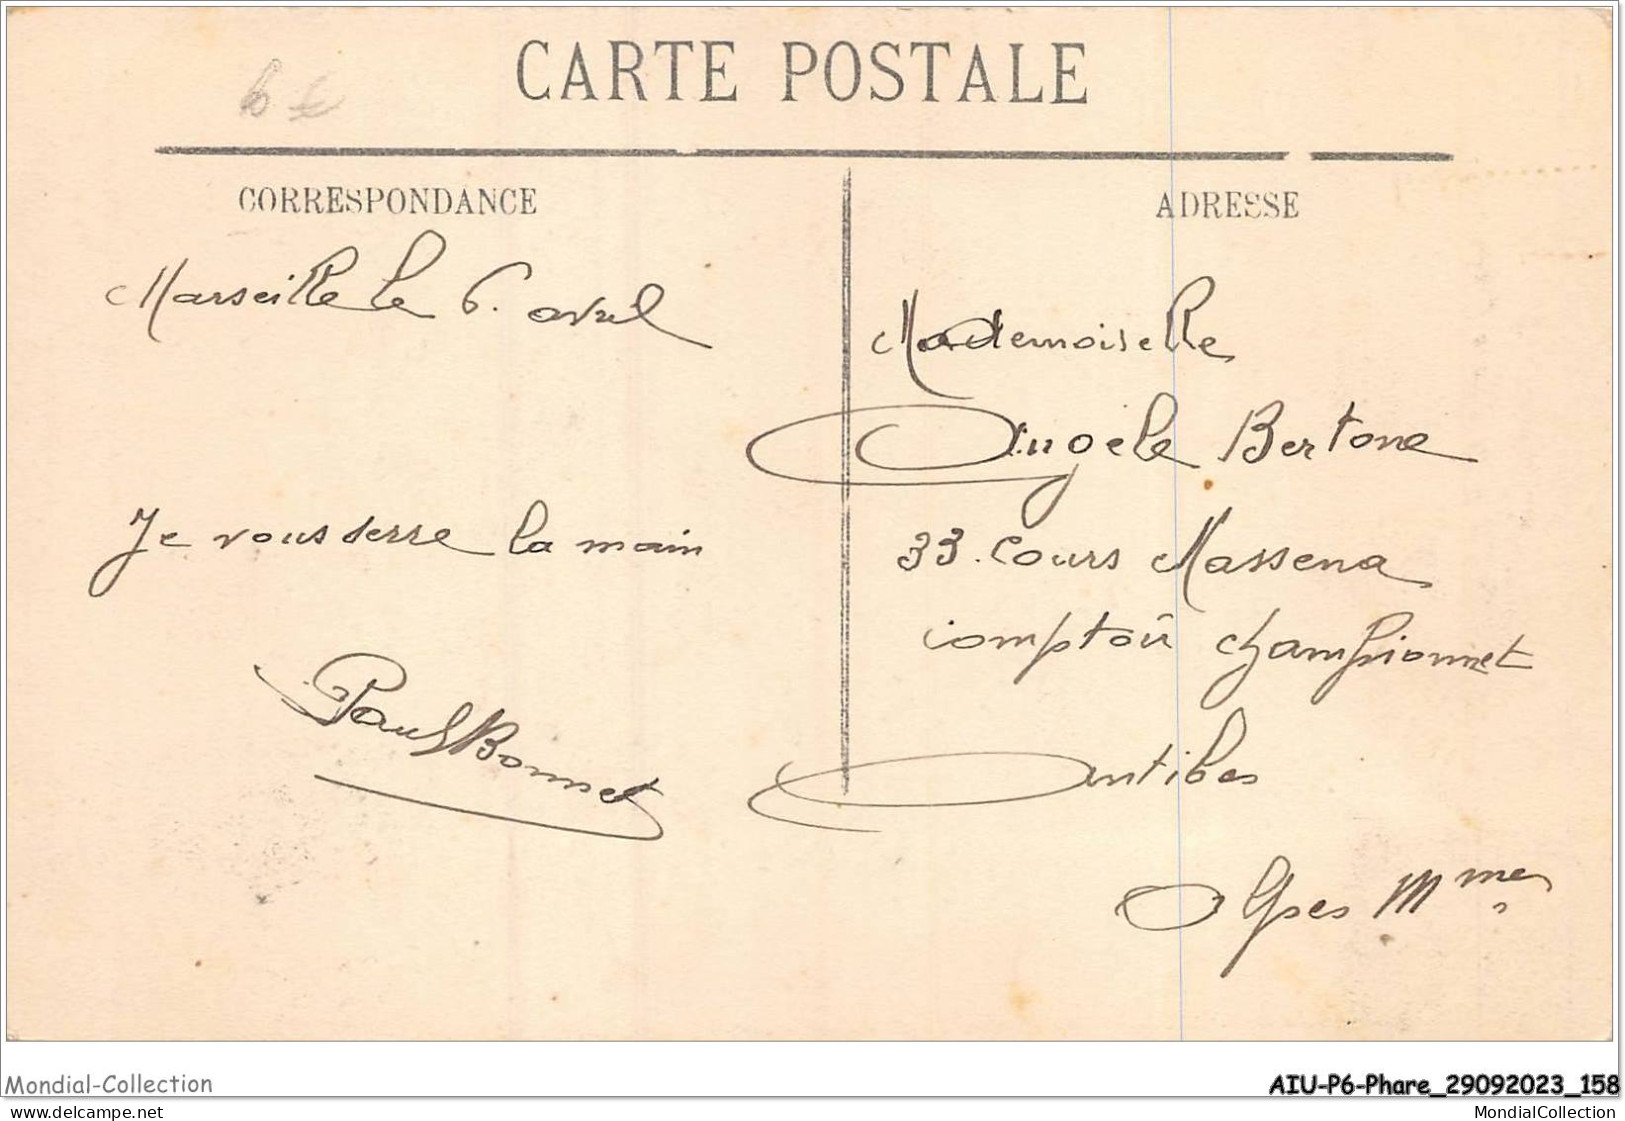 6 €
CARTE POSTALE
CORRESPONDANCE
Marseille le 6. avril
Je vous serre la main
Paul Bonnet
ADRESSE
Mademoiselle
Angele Bertone
33. Cours Massena
comptoir championnet
Antibes
Alpes Mmes
Mondial-Collection
delcampe.net
AIU-P6-Phare_29092023_158
MondialCollection